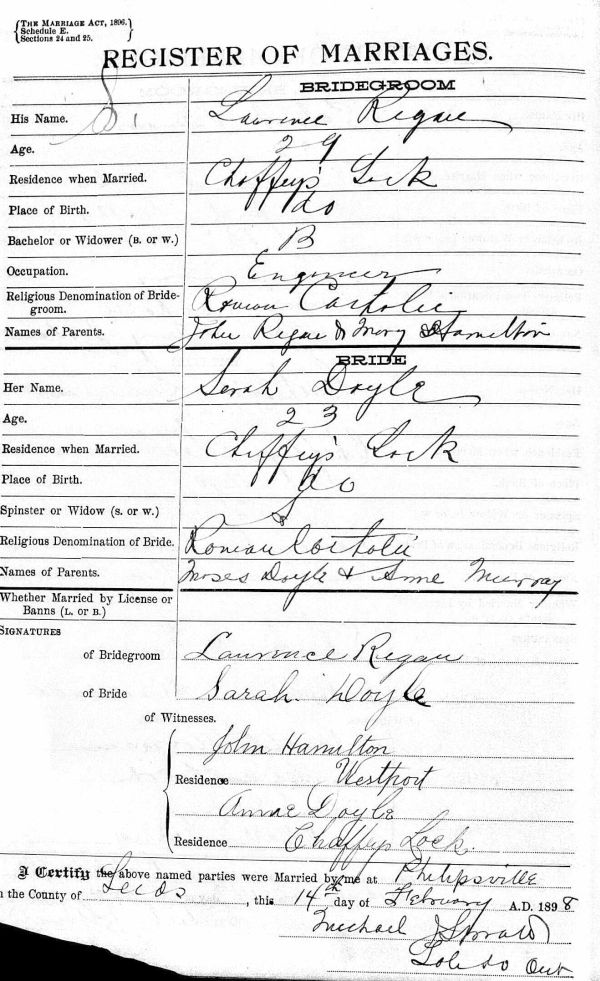 THE MARRIAGE ACT, 1896.
Schedule E.
Sections 24 and 25.
REGISTER OF MARRIAGES.
BRIDEGROOM
His Name. Lawrence Regan
Age. 29
Residence when Married. Chaffey's Lock
Place of Birth. do
Bachelor or Widower (B. or W.) B
Occupation. Engineer
Religious Denomination of Bride-
groom. Roman Catholic
Names of Parents. John Regan & Mary Hamilton
BRIDE
Her Name. Serah Doyle
Age. 23
Residence when Married. Chaffey's Lock
Place of Birth. do
Spinster or Widow (S. or W.) S
Religious Denomination of Bride. Roman Catholic
Names of Parents. Moses Doyle & Anne Murray
Whether Married by License or
Banns (L. or B.)
SIGNATURES
of Bridegroom Lawrence Regan
of Bride Sarah Doyle
of Witnesses.
John Hamilton
Residence Westport
Anne Doyle
Residence Chaffys Lock.
I Certify the above named parties were Married by me at Philipsville
n the County of Leeds, this 14th day of February A.D. 1898
Michael J
Toledo Ont